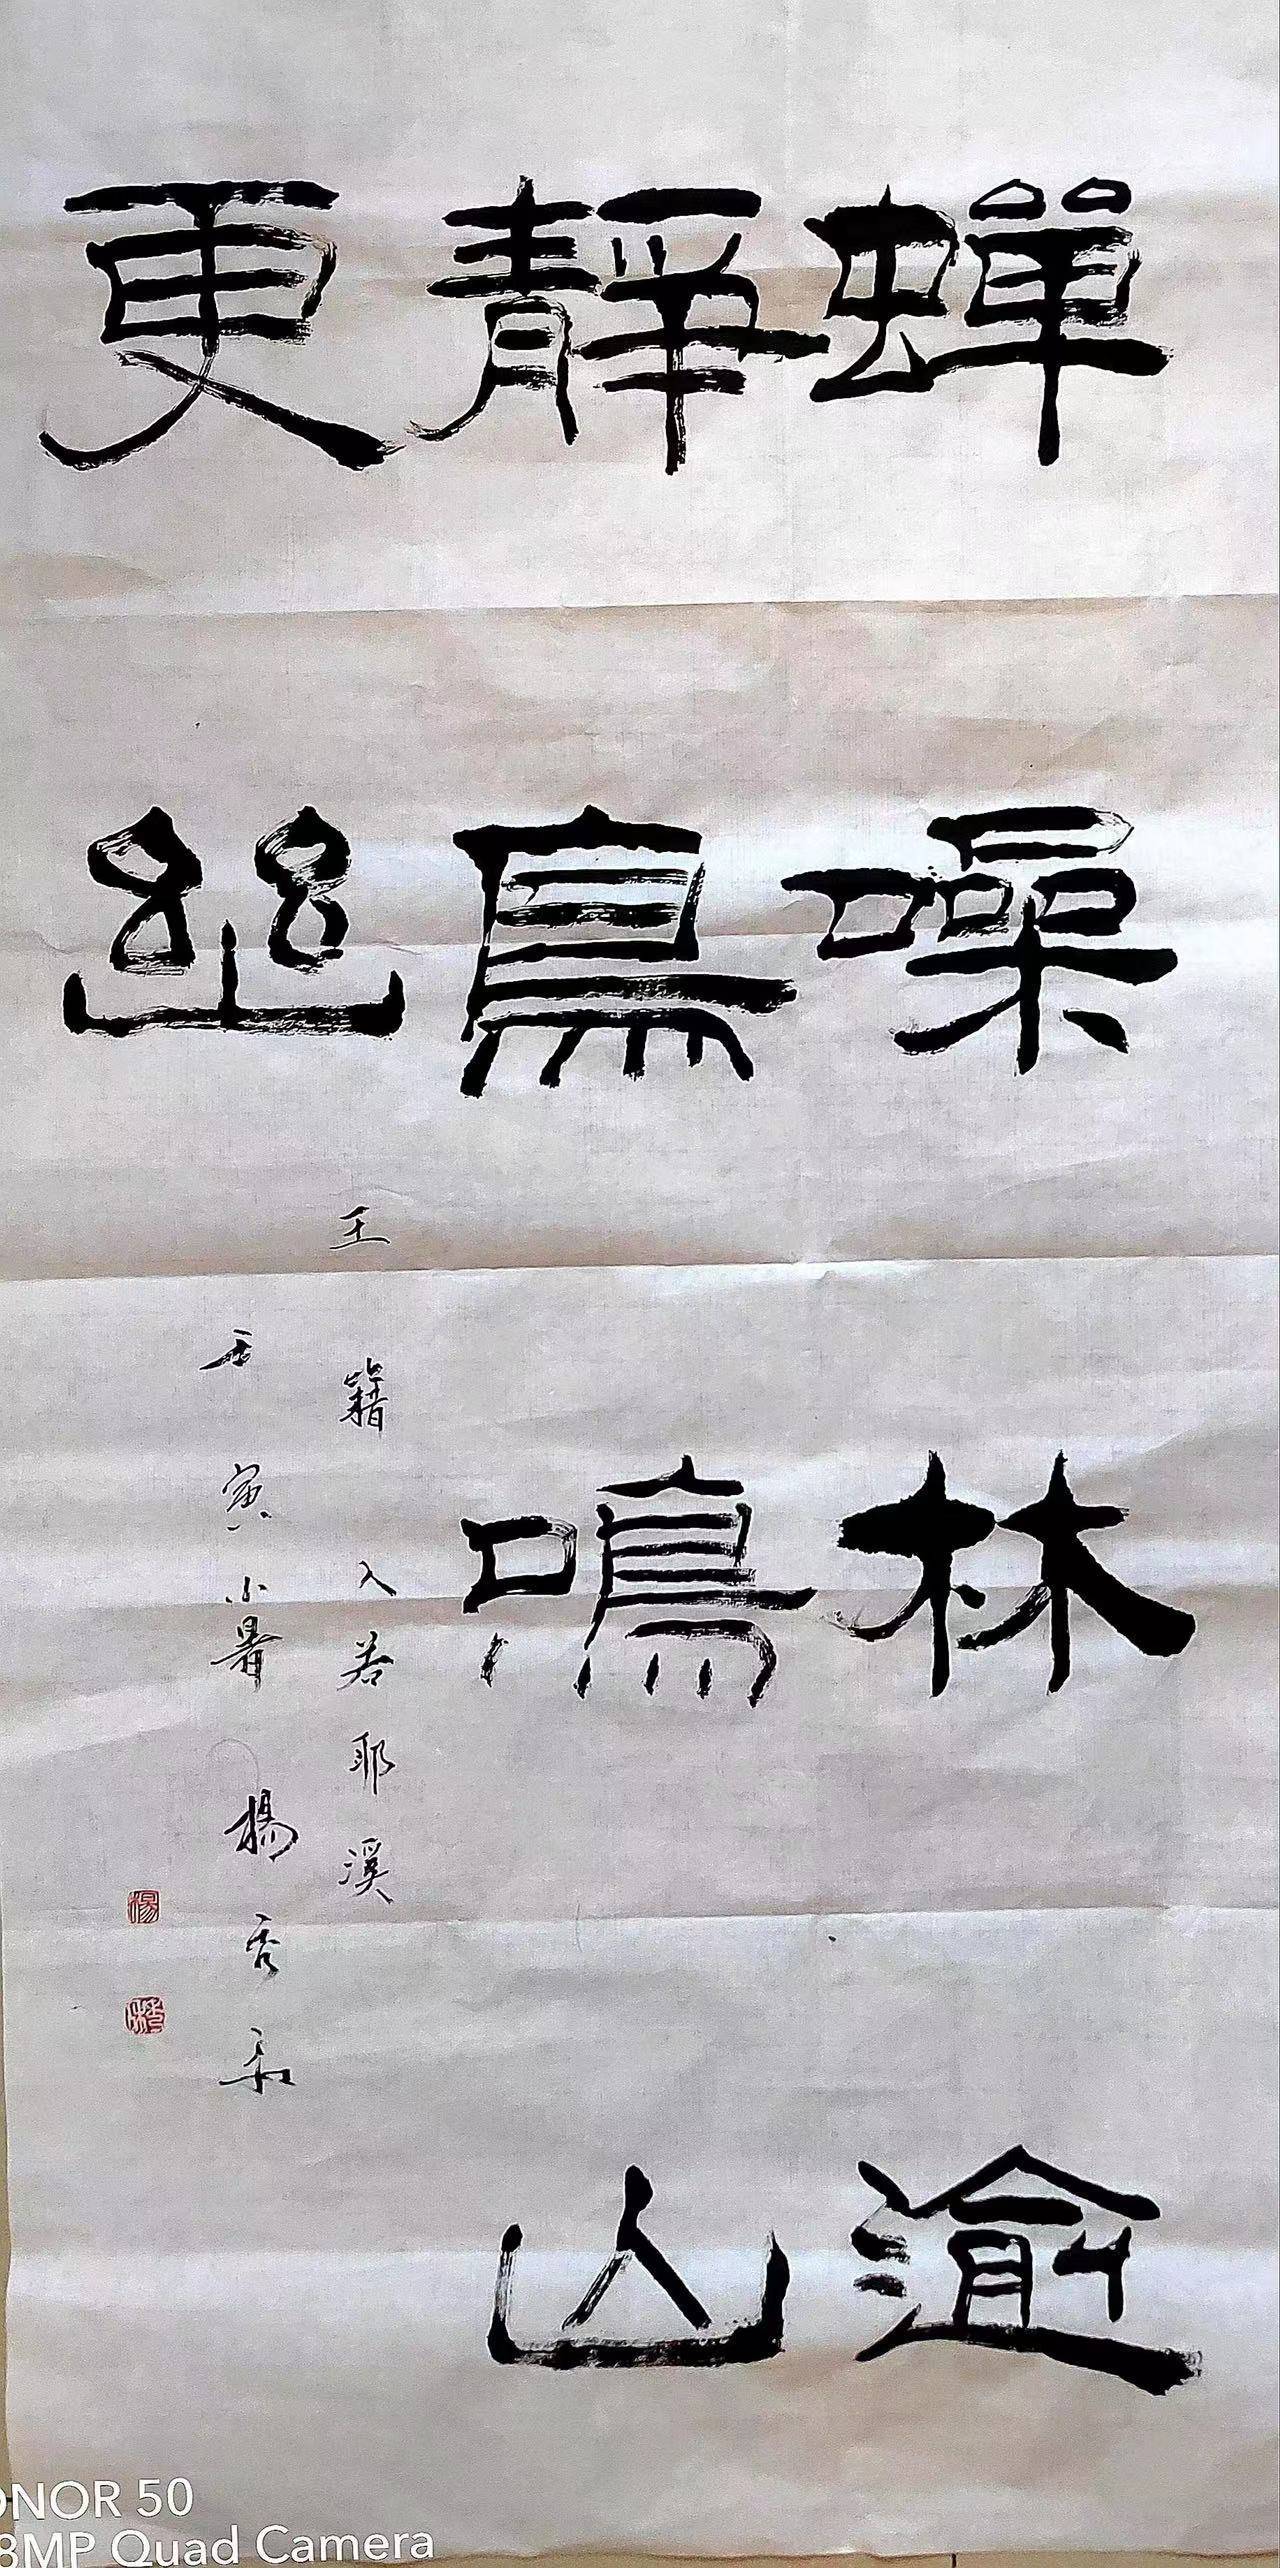 蟬噪林逾
靜鳥鳴山
更幽
王籍入若耶溪
壬寅小暑 楊秀和
楊
ONOR 50
8MP Quad Camera